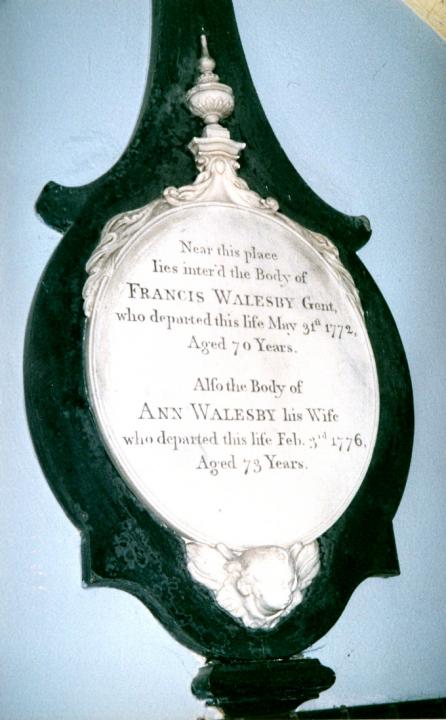 Near this place
lies inter'd the Body of
FRANCIS WALESBY Gent,
who departed this life May 31st 1772,
Aged 70 Years.
Alſo the Body of
ANN WALESBY his Wife
who departed this life Feb. 3rd 1776,
Aged 73 Years.